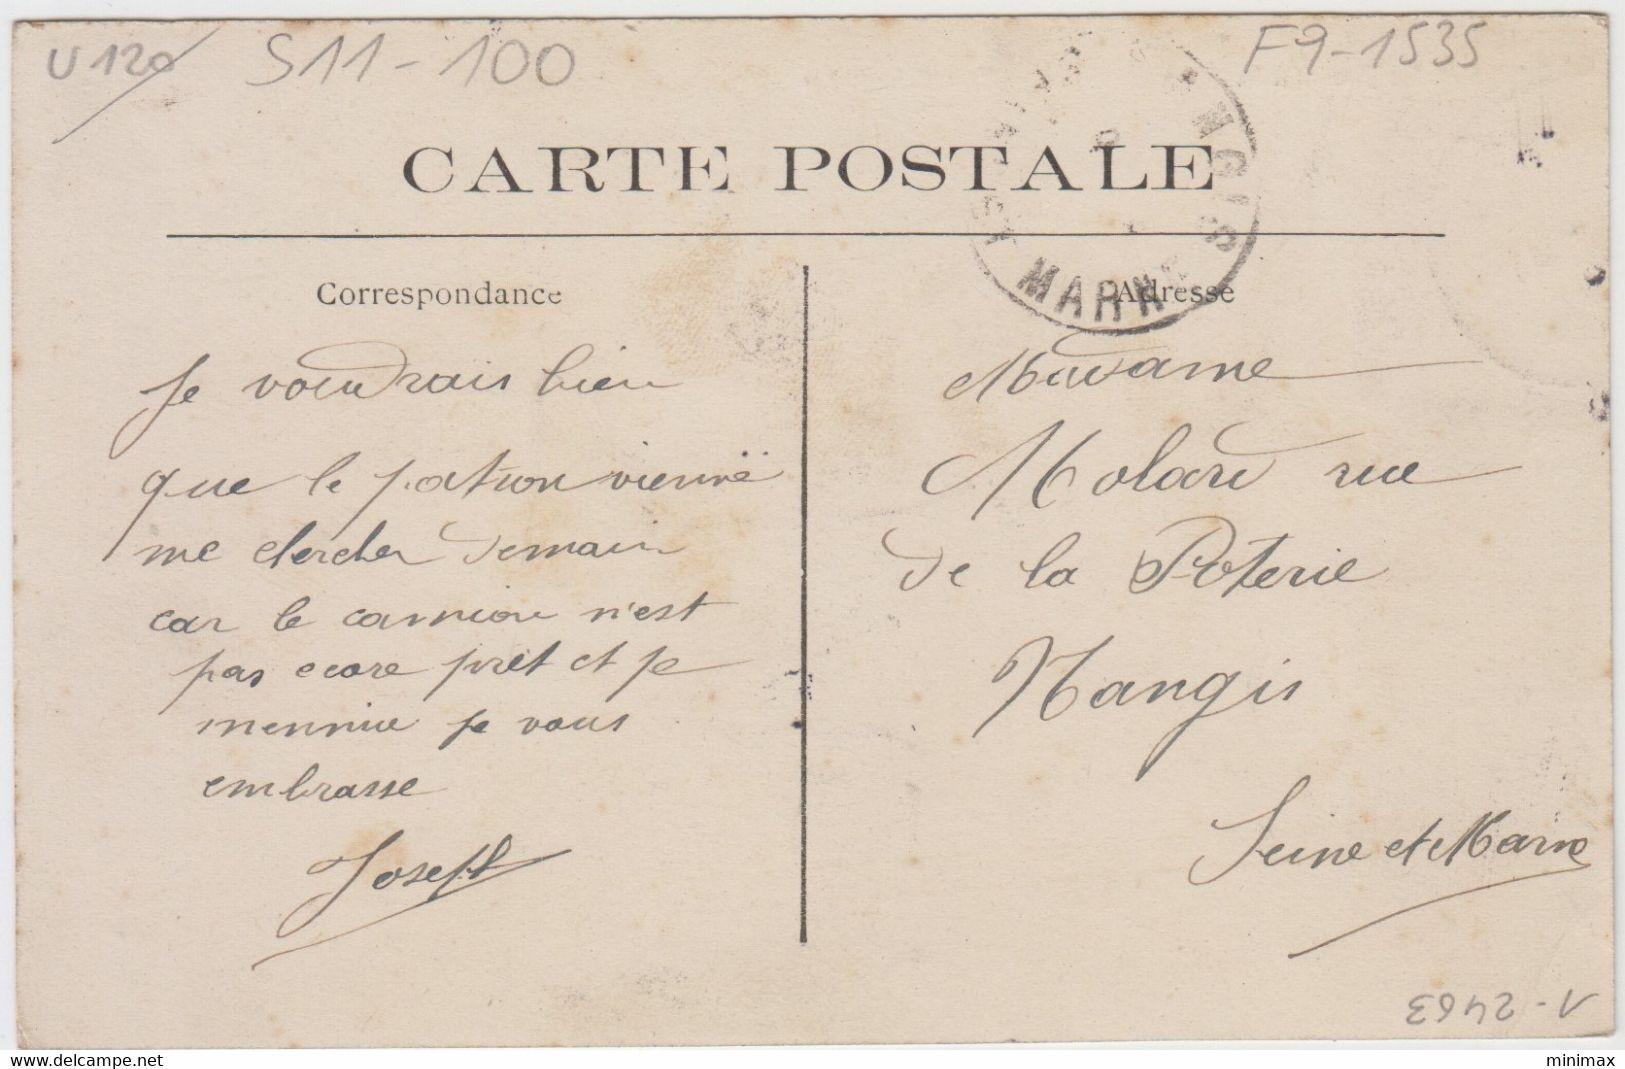 U120
S11-100
F9-1535
NANGIS
ET MARNE
CARTE POSTALE
Correspondance
Je voudrais bien
que le patron vienne
me chercher demain
car le camion n'est
pas ecore prêt et je
mennuie je vous
embrasse
Joseph
Adresse
Madame
Molard rue
de la Poterie
Nangis
Seine et Marne
1-2463
www.delcampe.net
minimax